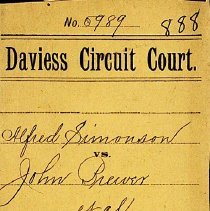 No. 5989 888
Daviess Circuit Court.
Alfred Simonson
vs.
John Brewer
et al